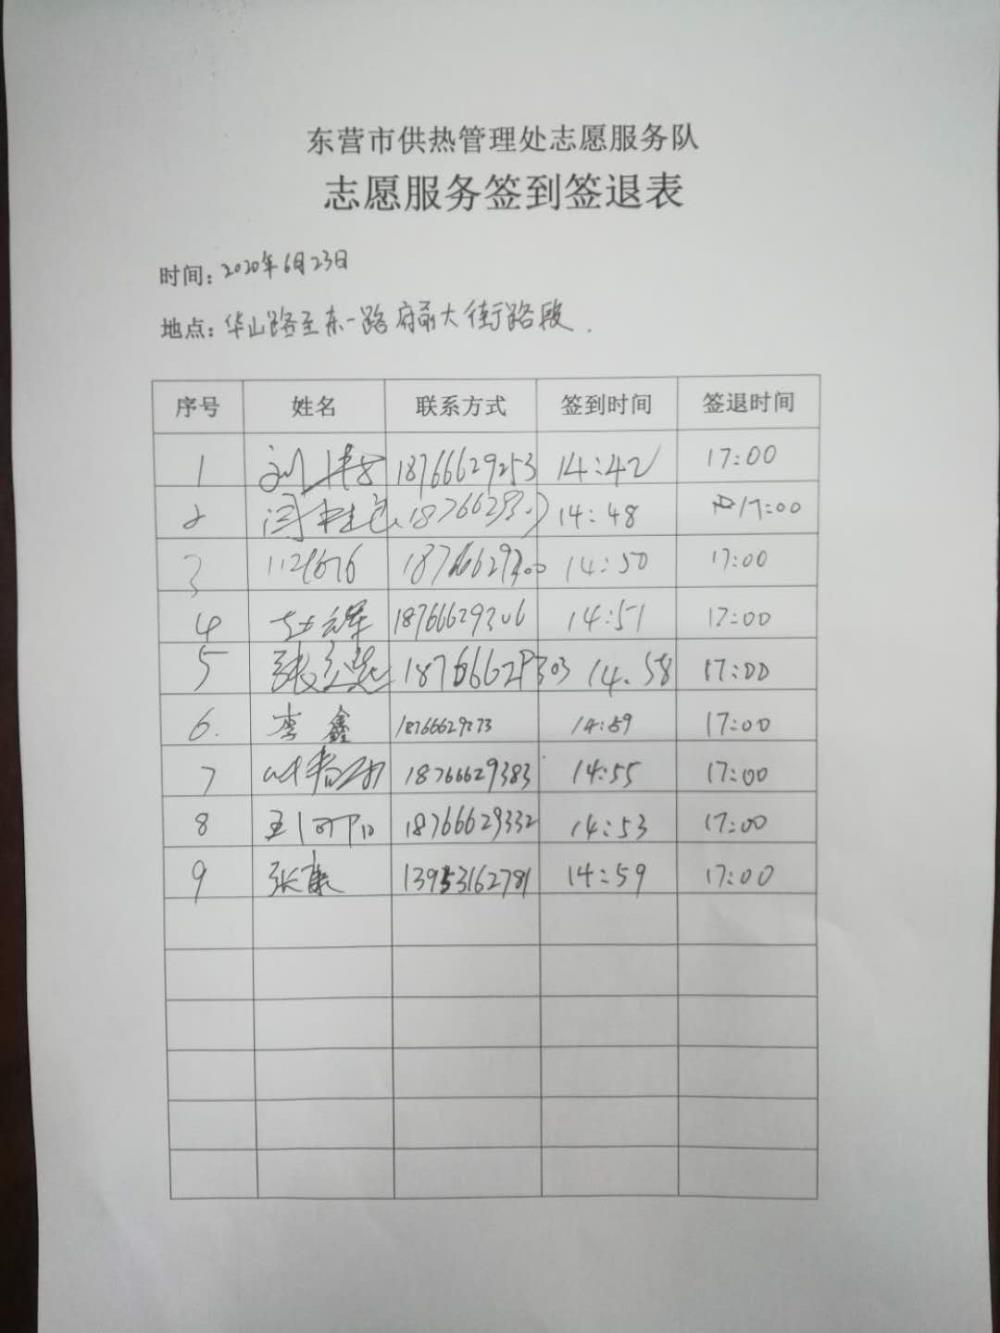 东营市供热管理处志愿服务队
志愿服务签到签退表
时间：2020年6月23日
地点：华山路至东一路府前大街路段.
序号 姓名 联系方式 签到时间 签退时间
1 刘 18766629253 14:42 17:00
2 闫 14:48 17:00
3 14:50 17:00
4 辉 18766629306 14:51 17:00
5 张 18766629303 14.58 17:00
6. 李鑫 18766629273 14:59 17:00
7 18766629383 14:55 17:00
8 王 18766629332 14:53 17:00
9 张康 13953162781 14:59 17:00